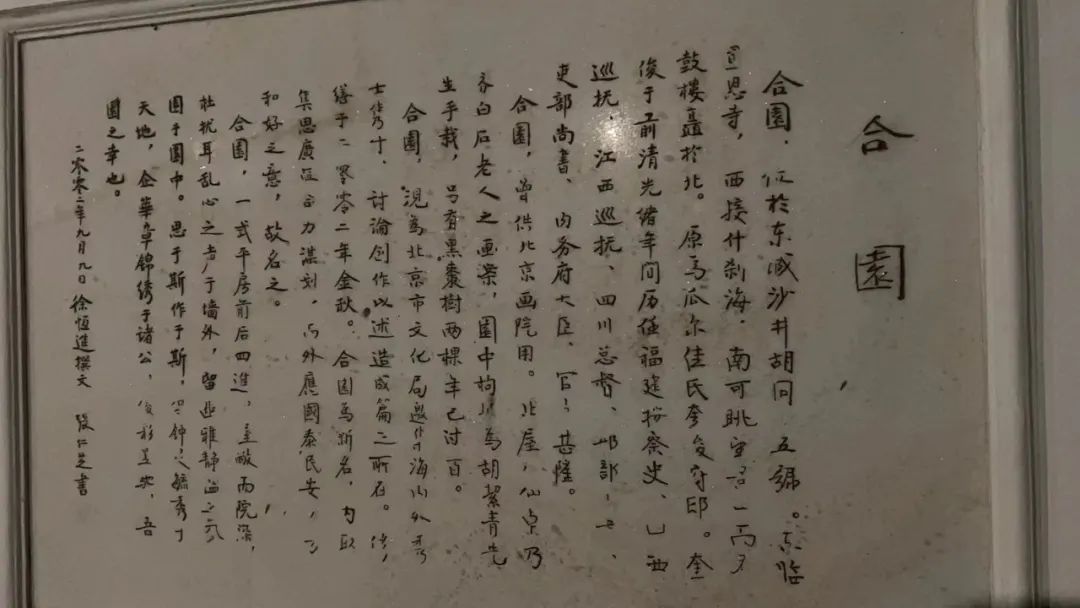 合園
合園，位於东城沙井胡同五號。东临
宣恩寺，西接什刹海，南可眺望
鼓樓矗於北。原為瓜尔佳氏奎俊守邸。奎
俊于前清光绪年间历任福建按察史、山西
巡抚、江西巡抚、四川总督、部
吏部尚書、内务府大臣，官甚隆。
合園，曾供北京画院用。北屋，仙中乃
齐白石老人之画案，園中枸为胡絜青先
生手栽，另有黑棗樹两棵年已过百。
合園，現為北京市文化局邀海内外
士，讨論创作以述造成篇之所在。
缮于二零零二年金秋。合園為新名，内取
集思廣益合力谋划，而外應國泰民安，
和好之意，故名之。
合園，一式平房前后四進，至敞而院深，
杜扰耳乱心之声于墙外，留幽雅静谧之氛
围于園中。思于斯作于斯，钟之毓秀于
天地，企華章锦绣于诸公，吾
園之幸也。
二零零二年九月九日 徐恆進撰文 張仁芝書